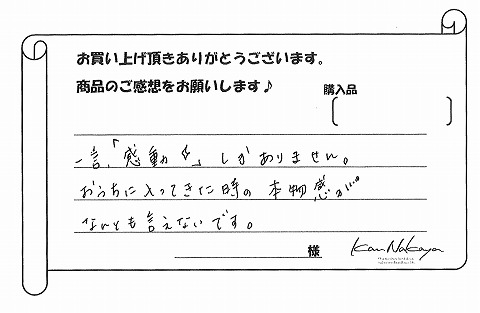 お買い上げ頂きありがとうございます。
商品のご感想をお願いします♪
購入品
一言、「感動!!」しかありません。
おうちに入ってきた時の本物感が…
なんとも言えないです。
様
Kan Nakaya